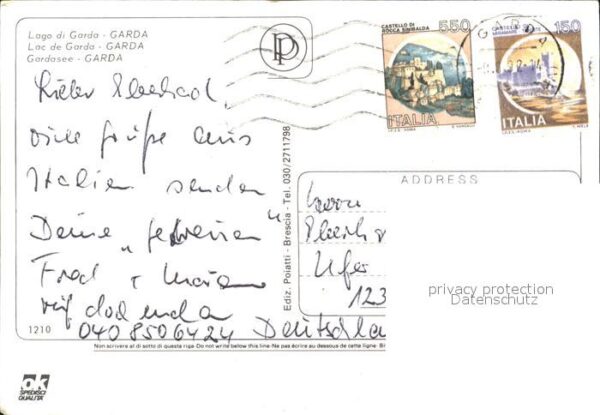 Lago di Garda - GARDA
Lac de Garda - GARDA
Gardasee - GARDA
PP
CASTELLO DI
ROCCA SINIBALDA
550
ITALIA
I.P.Z.S. ROMA
CASTELLO
MIRAMARE
150
ITALIA
I.P.Z.S. ROMA
GARDA
Lieber
viele Grüße aus
Italien senden
Deine "
Fred +
040 8506424 Deutschla
1210
Ediz. Poiatti - Brescia - Tel. 030/2711798
ADDRESS
Herrn
Ufer
123
privacy protection
Datenschutz
Non scrivere al di sotto di questa riga - Do not write below this line - Ne pas écrire au dessous de cette ligne -
ok
SPEDISCI
QUALITÀ